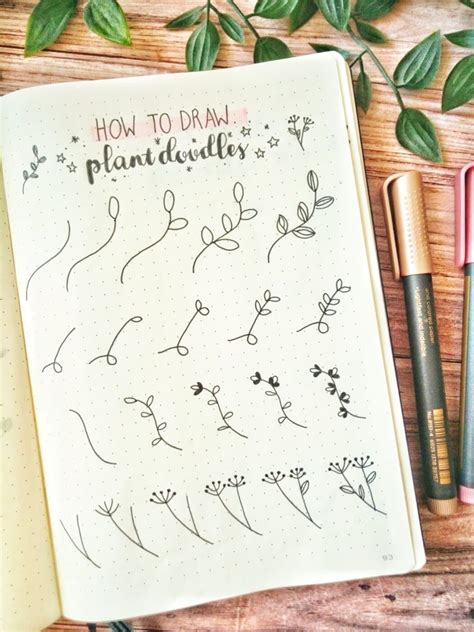 HOW TO DRAW
plant doodles
93